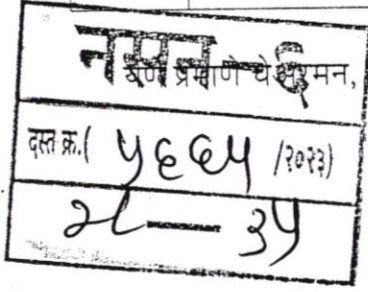 नसन - ६
प्रमाणे चे
दस्त क्र.( ५६६५ /२०२३)
२८ — ३५